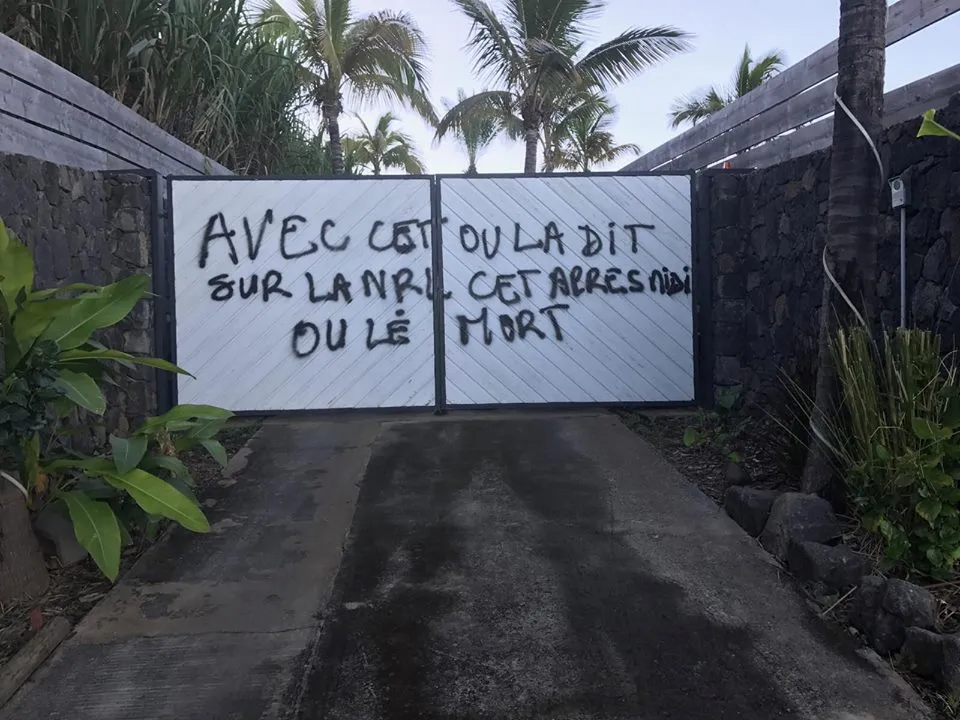 AVEC CET OU LA DIT
SUR LA NRL CET APRES MIDI
OU LÉ MORT